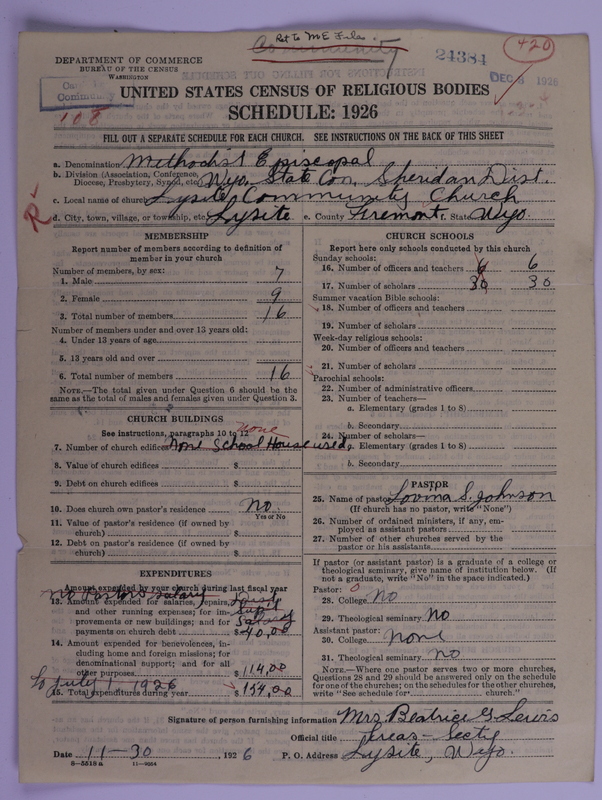 Ret to M E Files.
Community
24384
420
DEPARTMENT OF COMMERCE
BUREAU OF THE CENSUS
WASHINGTON
DEC 3 1926
Community
108
UNITED STATES CENSUS OF RELIGIOUS BODIES
SCHEDULE: 1926
FILL OUT A SEPARATE SCHEDULE FOR EACH CHURCH. SEE INSTRUCTIONS ON THE BACK OF THIS SHEET
R
a. Denomination Methodist Episcopal
b. Division (Association, Conference, Diocese, Presbytery, Synod, etc.) Wyo. State Con, Sheridan Dist.
c. Local name of church Lysite Community Church
d. City, town, village, or township, etc. Lysite e. County Fremont f. State Wyo
MEMBERSHIP
Report number of members according to definition of
member in your church
Number of members, by sex:
1. Male 7
2. Female 9
3. Total number of members 16
Number of members under and over 13 years old:
4. Under 13 years of age
5. 13 years old and over
6. Total number of members 16
NOTE.—The total given under Question 6 should be the
same as the total of males and females given under Question 3.
CHURCH BUILDINGS
See instructions, paragraphs 10 to 12
None
7. Number of church edifices School House used
8. Value of church edifices $
9. Debt on church edifices $
10. Does church own pastor's residence No.
Yes or No
11. Value of pastor's residence (if owned by
church) $
12. Debt on pastor's residence (if owned by
church) $
EXPENDITURES
Amount expended by your church during last fiscal year
no Pastors salary
13. Amount expended for salaries, repairs, Dist
and other running expenses; for im- Supt
provements or new buildings; and for Salary
payments on church debt $ 40,00
14. Amount expended for benevolences, in-
cluding home and foreign missions; for
denominational support; and for all
other purposes $ 114,00
to July 1 1926
15. Total expenditures during year $ 154,00
CHURCH SCHOOLS
Report here only schools conducted by this church
Sunday schools:
16. Number of officers and teachers 6 6
17. Number of scholars 30 30
Summer vacation Bible schools:
18. Number of officers and teachers
19. Number of scholars
Week-day religious schools:
20. Number of officers and teachers
21. Number of scholars
Parochial schools:
22. Number of administrative officers
23. Number of teachers—
a. Elementary (grades 1 to 8)
b. Secondary
24. Number of scholars—
a. Elementary (grades 1 to 8)
b. Secondary
PASTOR
25. Name of pastor Lovina S. Johnson
(If church has no pastor, write "None")
26. Number of ordained ministers, if any, em-
ployed as assistant pastors
27. Number of other churches served by the
pastor or his assistants
If pastor (or assistant pastor) is a graduate of a college or
theological seminary, give name of institution below. (If
not a graduate, write "No" in the space indicated.)
Pastor: 0
28. College No
29. Theological seminary No
Assistant pastor:
30. College None
31. Theological seminary No
NOTE.—Where one pastor serves two or more churches,
Questions 28 and 29 should be answered only on the schedule
for one of the churches; on the schedules for the other churches,
write "See schedule for church."
Signature of person furnishing information Mrs Beatrice G Lewis
Official title Treas - Secty
Date 11-30, 1926 P. O. Address Lysite, Wyo.
8—5518 a 11—9084